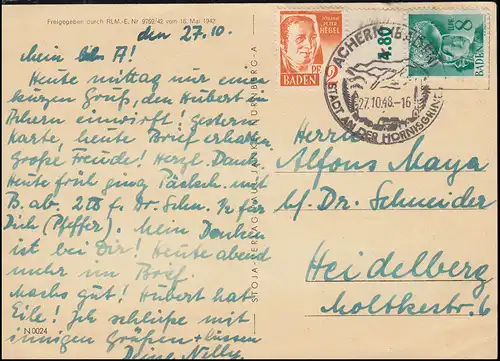 Freigegeben durch RLM.-E. Nr 9769/42 vom 18. Mai 1942
den 27.10.
Mein A!
Heute mittag nur einen
kurzen Gruß, den Hubert in
Achern einwirft! gestern
Karte, heute Brief erhalten.
Große Freude! Herzl. Dank.
Heute früh ging Päckch. mit
B. ab. f. Dr. Schn. ½ für
Dich (Pfeffer). Mein Denken
ist bei Dir! Heute abend
mehr im Brief.
Machs gut! Hubert hat
Eile! Ich schließe mit
innigen Grüßen + Küssen
Deine Nelly.
N 0024
STOJA-VERLAG PAUL JANKE NÜRNBERG-A
JOHANN PETER
HEBEL
2 PF
BADEN
4.80
8
BADEN
ACHERN
27.10.48.-16
STADT AN DER HORNISGRINDE
Herrn
Alfons Maya
b/. Dr. Schneider
Heidelberg
Moltkestr. 6